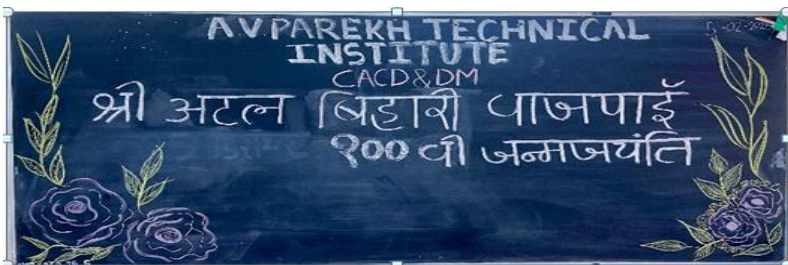 AV PAREKH TECHNICAL
INSTITUTE
CACD&DM
श्री अटल बिहारी वाजपाई
१०० वी जन्मजयंति